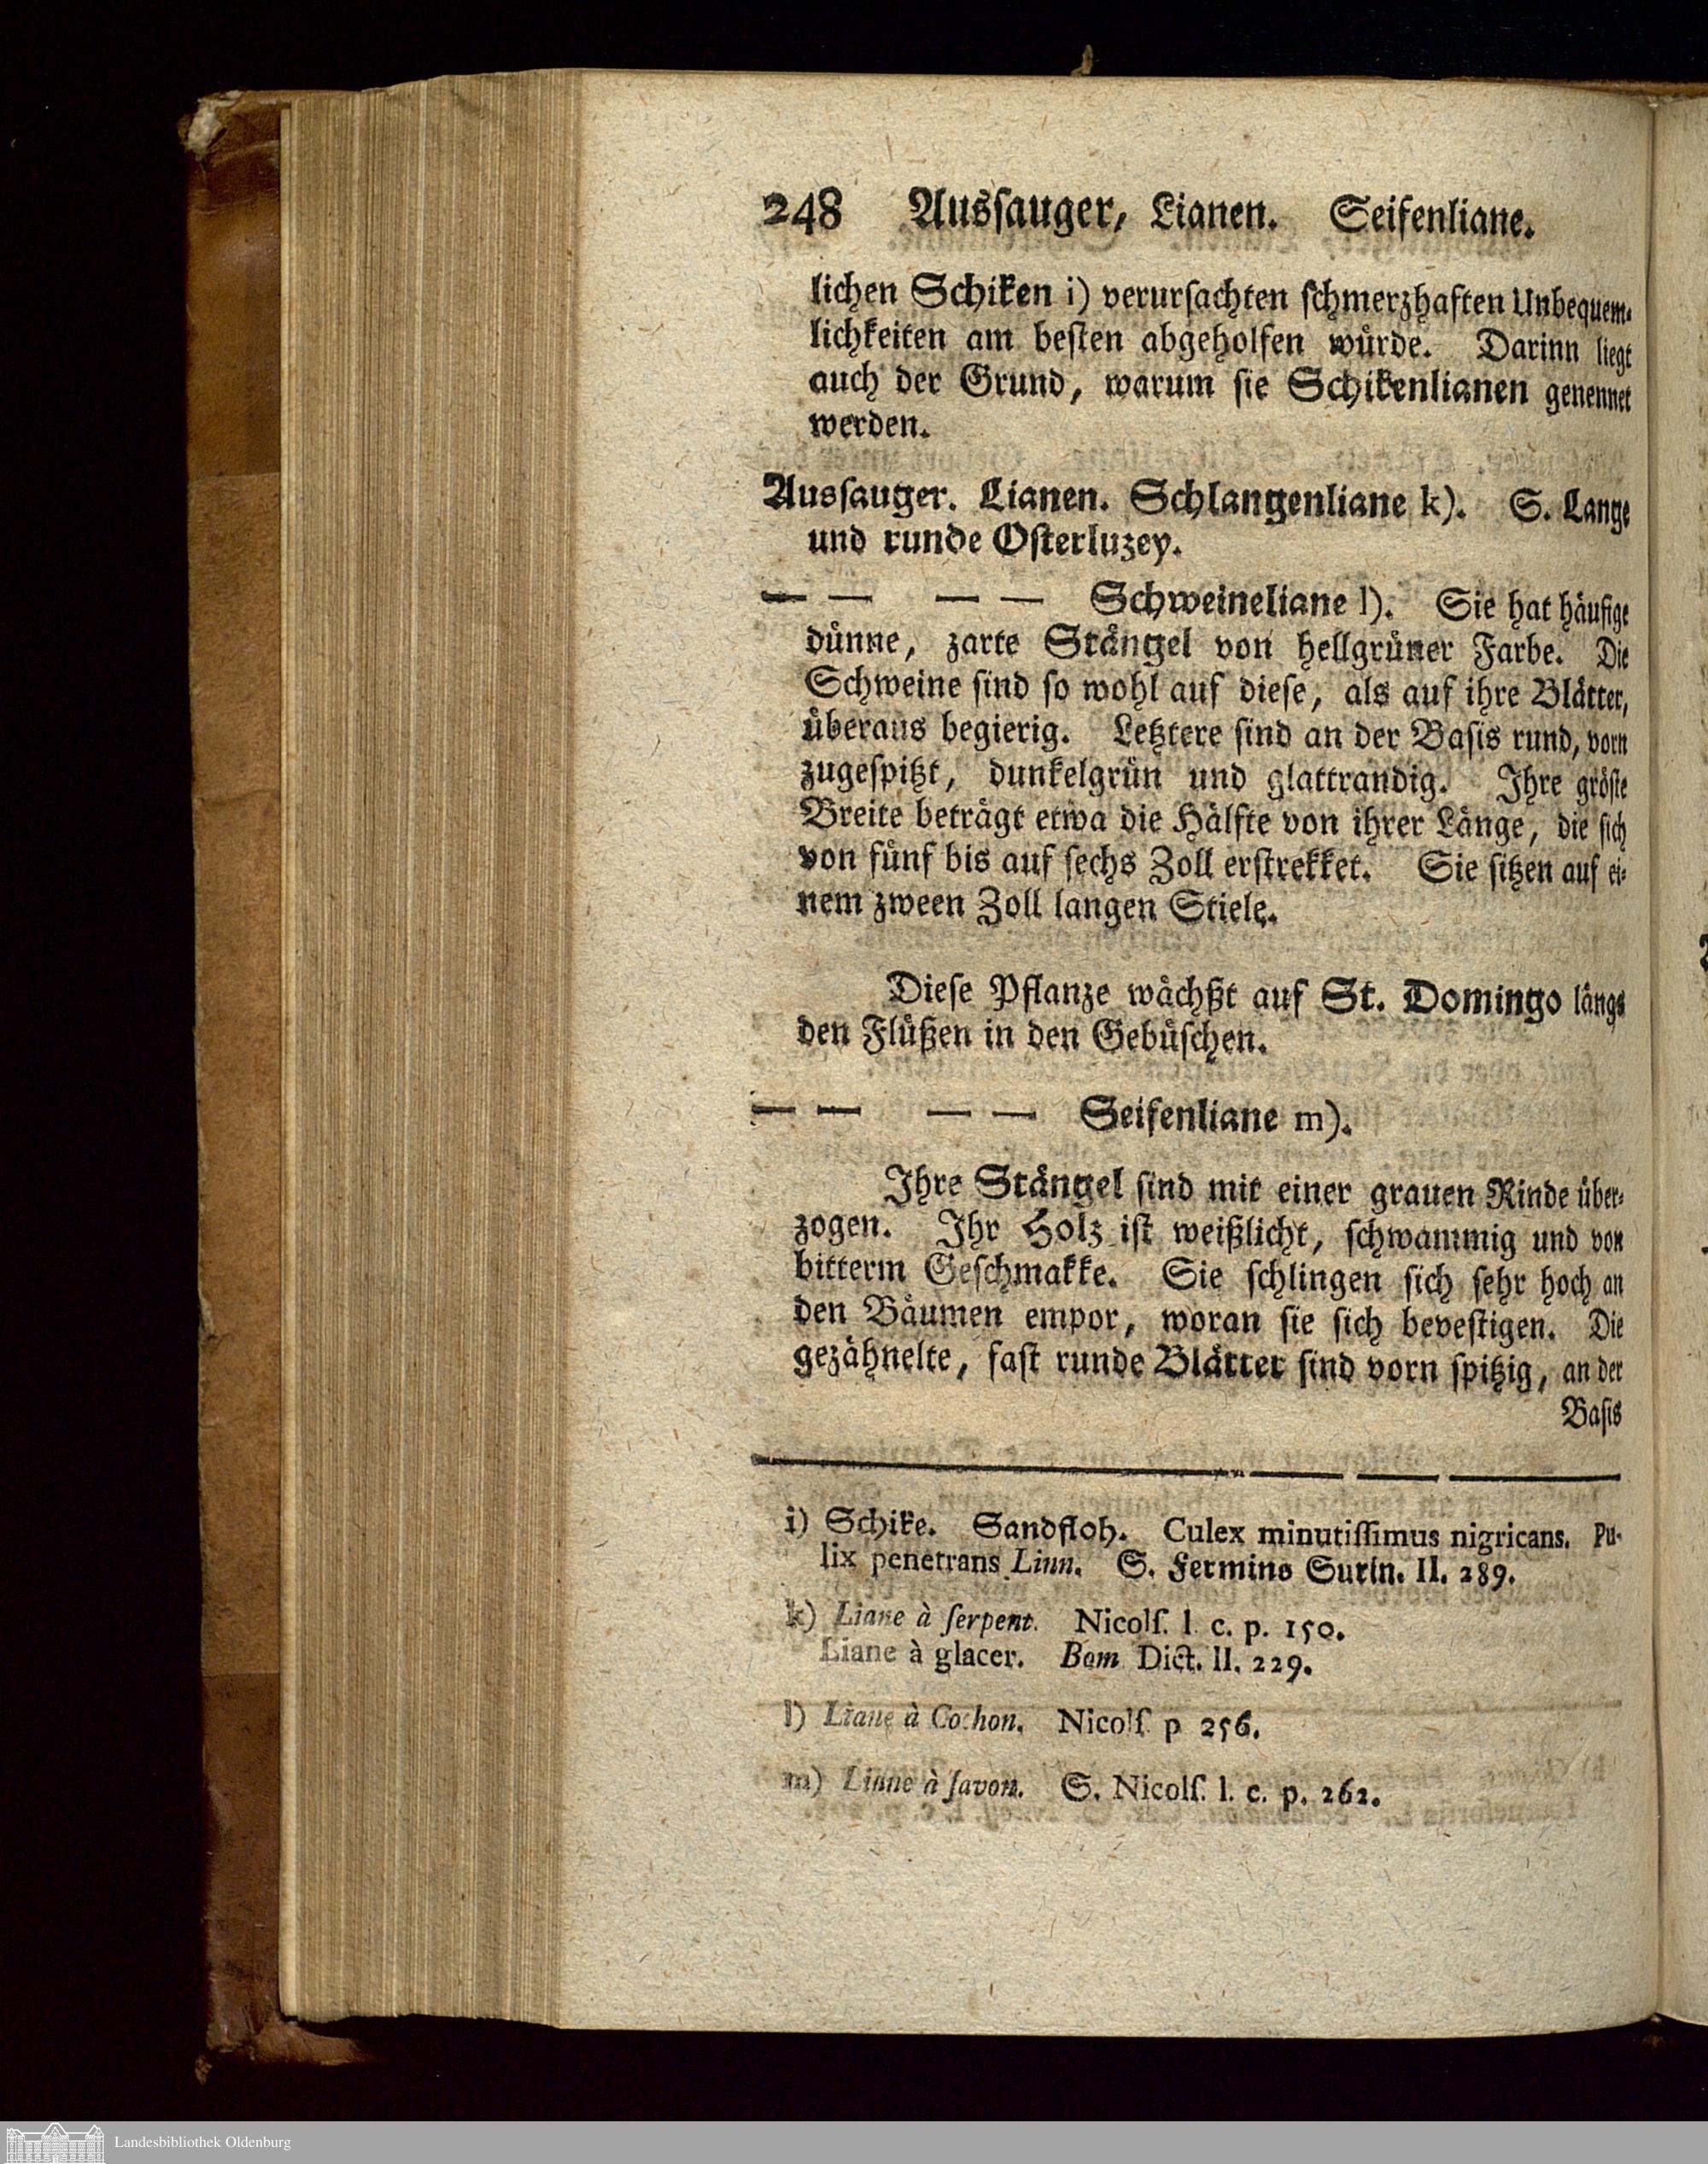 248 Ausſauger, Lianen. Seifenliane.
lichen Schiken i) verurſachten ſchmerzhaften Unbequem-
lichkeiten am beſten abgeholfen würde. Darinn liegt
auch der Grund, warum ſie Schikenlianen genennet
werden.
Ausſauger. Lianen. Schlangenliane k). S. Lange
und runde Oſterluzey.
— — — — Schweineliane l). Sie hat häufige
dünne, zarte Stängel von hellgrüner Farbe. Die
Schweine ſind ſo wohl auf dieſe, als auf ihre Blätter,
überaus begierig. Letztere ſind an der Baſis rund, vorn
zugeſpitzt, dunkelgrün und glattrandig. Ihre gröſte
Breite beträgt etwa die Hälfte von ihrer Länge, die ſich
von fünf bis auf ſechs Zoll erſtrekket. Sie ſitzen auf ei-
nem zween Zoll langen Stiele.
Dieſe Pflanze wächßt auf St. Domingo längs
den Flüßen in den Gebüſchen.
— — — — Seifenliane m).
Ihre Stängel ſind mit einer grauen Rinde über-
zogen. Ihr Holz iſt weißlicht, ſchwammig und von
bitterm Geſchmakke. Sie ſchlingen ſich ſehr hoch an
den Bäumen empor, woran ſie ſich beveſtigen. Die
gezähnelte, faſt runde Blätter ſind vorn ſpitzig, an der
Baſis
i) Schike. Sandfloh. Culex minutiſſimus nigricans. Pu-
lix penetrans Linn. S. Fermins Surin. II. 289.
k) Liane à ſerpent. Nicolſ. l. c. p. 150.
Liane à glacer. Bom Dict. II. 229.
l) Liane à Cochon. Nicolſ. p 256.
m) Liane à ſavon. S. Nicolſ. l. c. p. 262.
Landesbibliothek Oldenburg